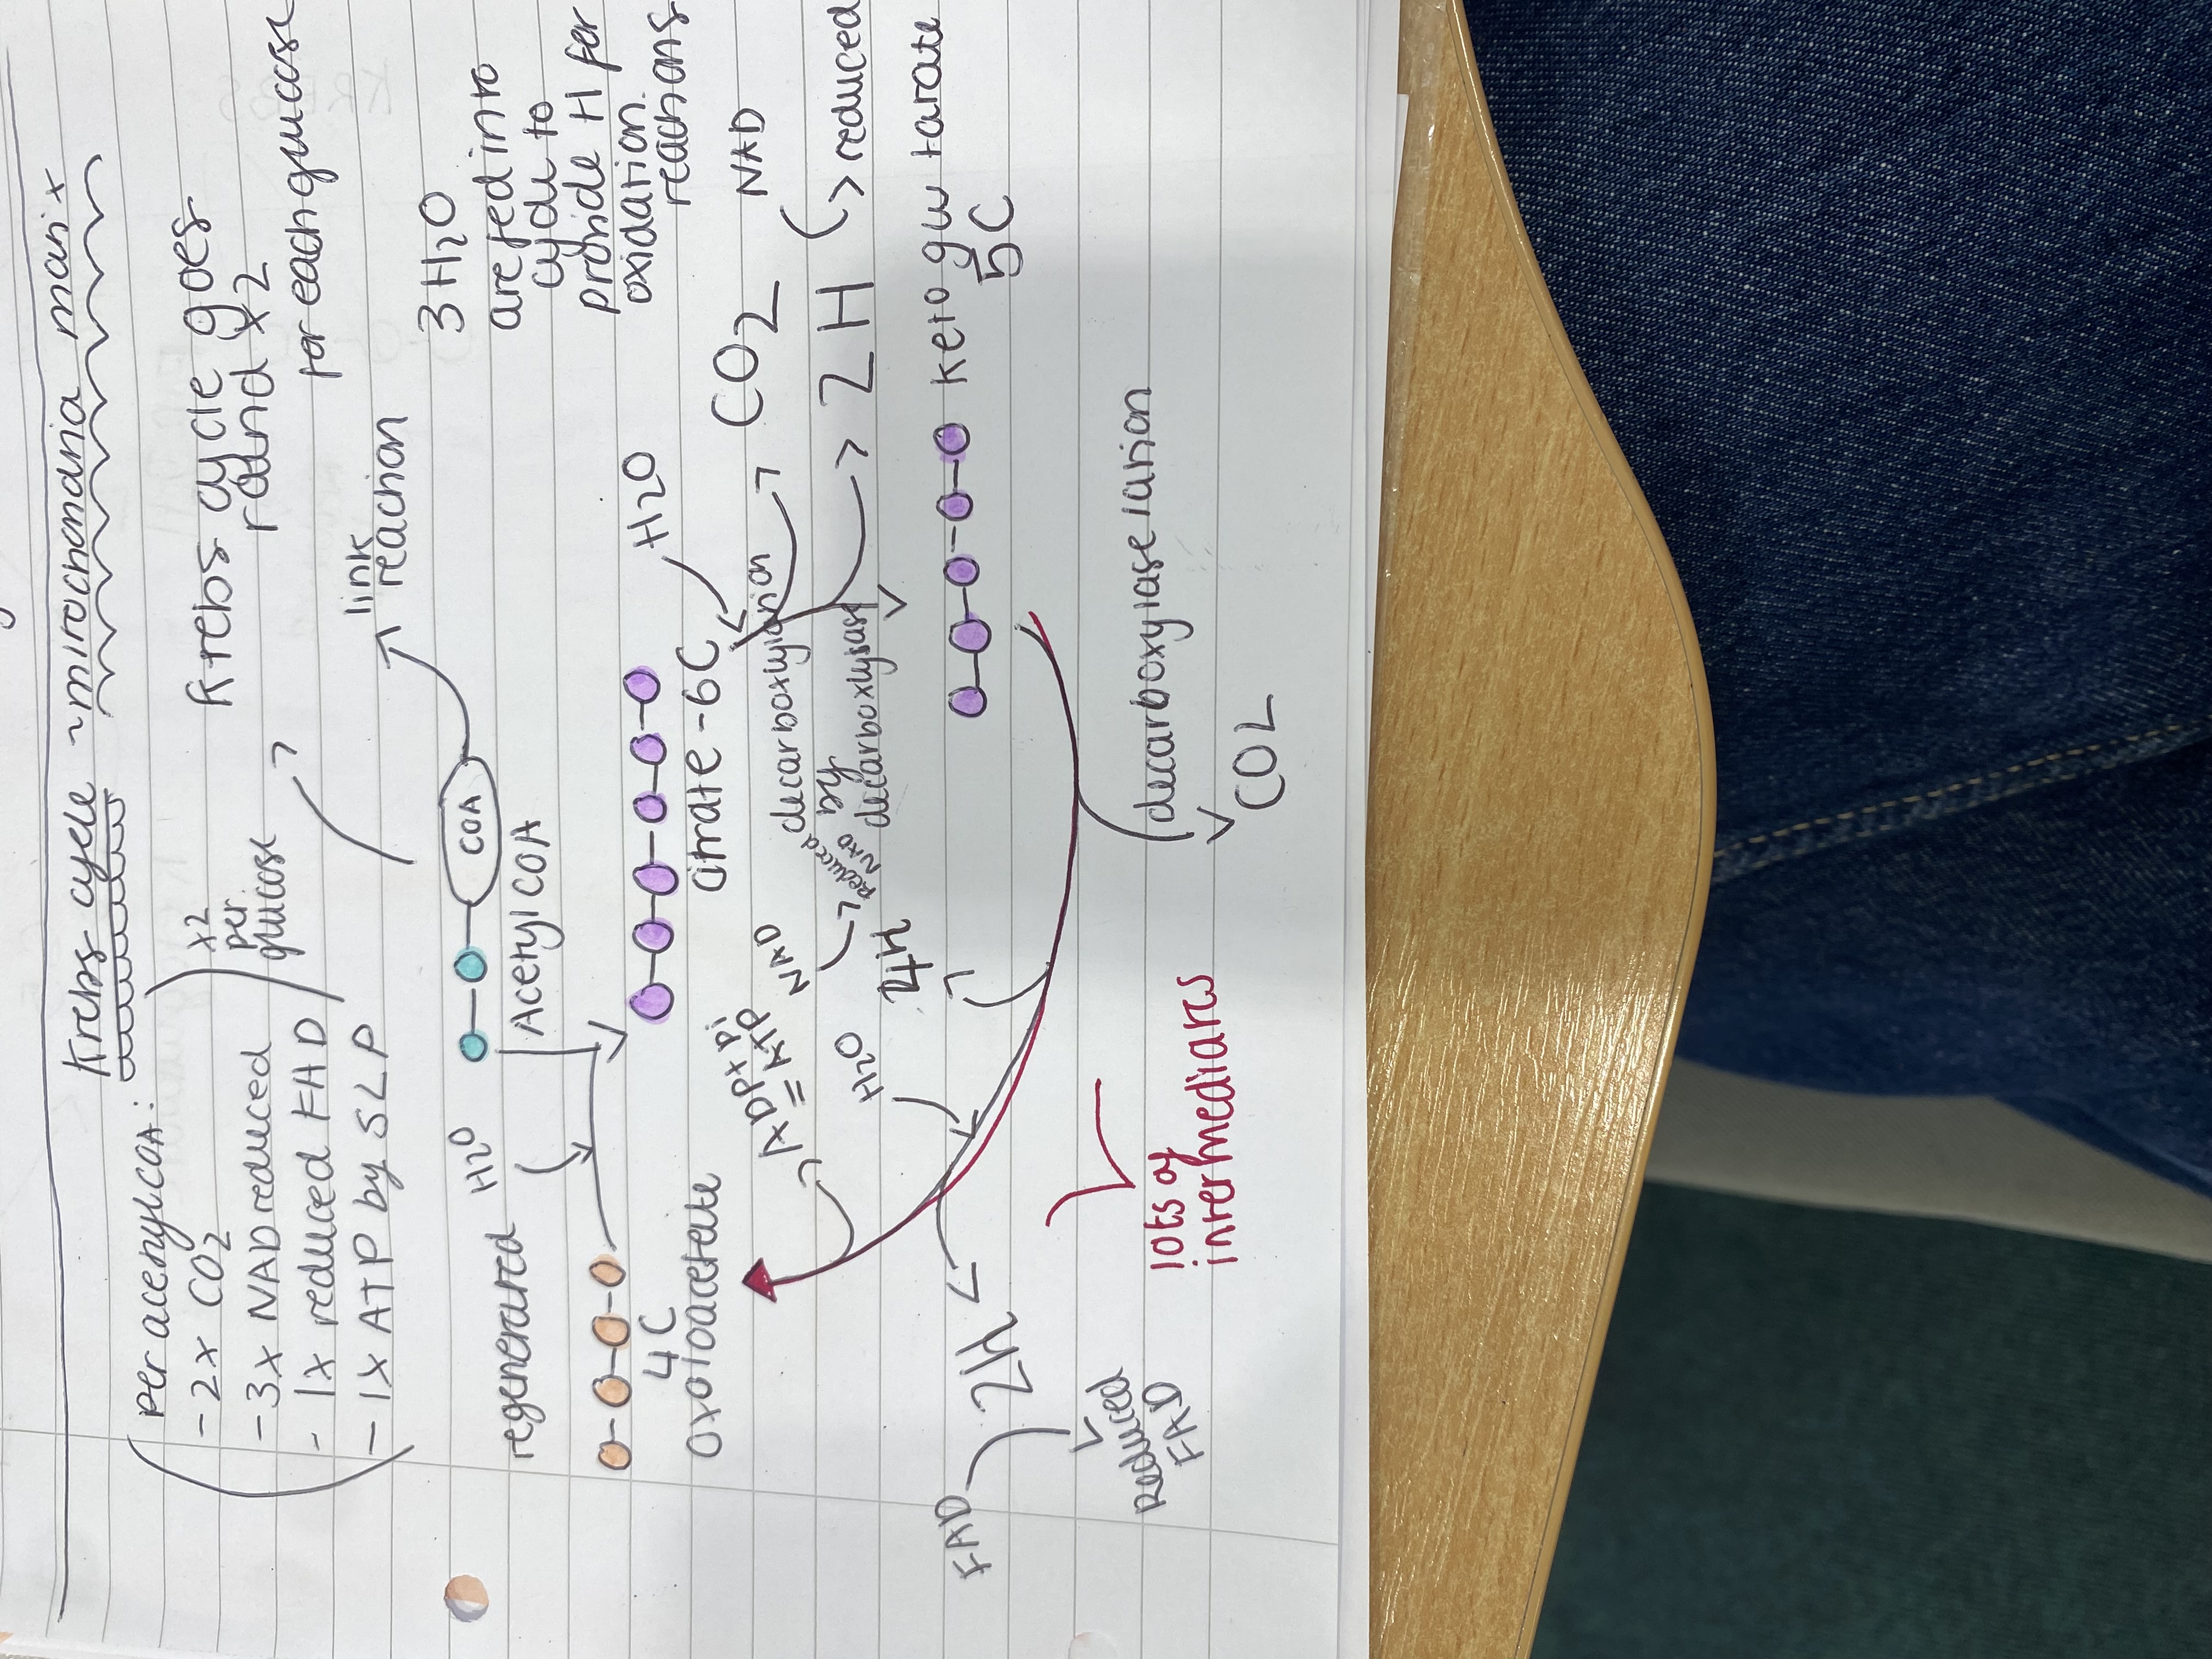 Krebs cycle ~ mitochondria matrix
per acetyl COA:
- 2x CO2
- 3x NAD reduced
- 1x reduced FAD
- 1x ATP by SLP
x2
per
glucose
Krebs cycle goes
round x2
for each glucose
link
reaction
3H2O
are fed into
cycle to
provide H for
oxidation
reactions
regenerated
H2O
COA
Acetyl COA
4C
oxoloacetate
H2O
citrate - 6C
decarboxylation
by
decarboxylase
CO2
NAD
2H
reduced
1x ADP + Pi
= ATP
NAD
reduced
NAD
H2O
4H
ketoglutarate
5C
FAD
2H
reduced
FAD
decarboxylase lation
CO2
lots of
intermediates